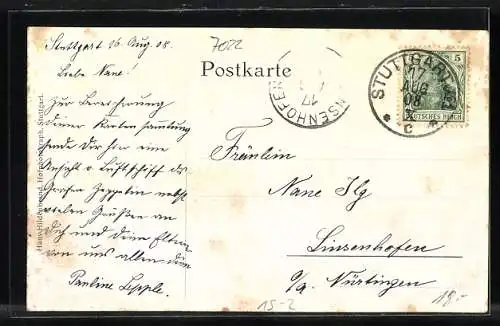 Stuttgart 16 Aug. 08.
Liebe Nane!
Zur Bereicherung
deiner Kartensammlung
sende Dir hier eine
Ansicht v. Luftschiff des
Grafen Zeppelin nebst
vielen Grüßen an
Dich und deine Eltern
von uns allen deine
Pauline Lepple.
Hans Hildenbrand, Hofphotograph, Stuttgart.
7022
Postkarte
NSENHOFEN
17
STUTTGART
17
AUG
08
C
5
DEUTSCHES REICH
Fräulein
Nane Ilg
Linsenhofen
O/A. Nürtingen
15-2
18.-